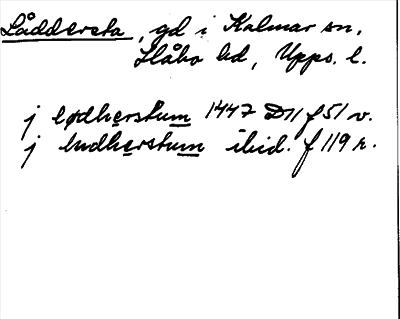 Låddersta, gd i Kalmar sn,
Håbo hd, Upps. l.
j lødherstum 1447 D11 f 51 v.
j ludherstum ibid. f 119 r.